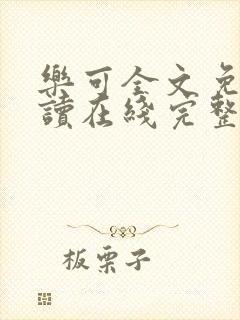 樂可全文免
讀在綫完整
板栗子